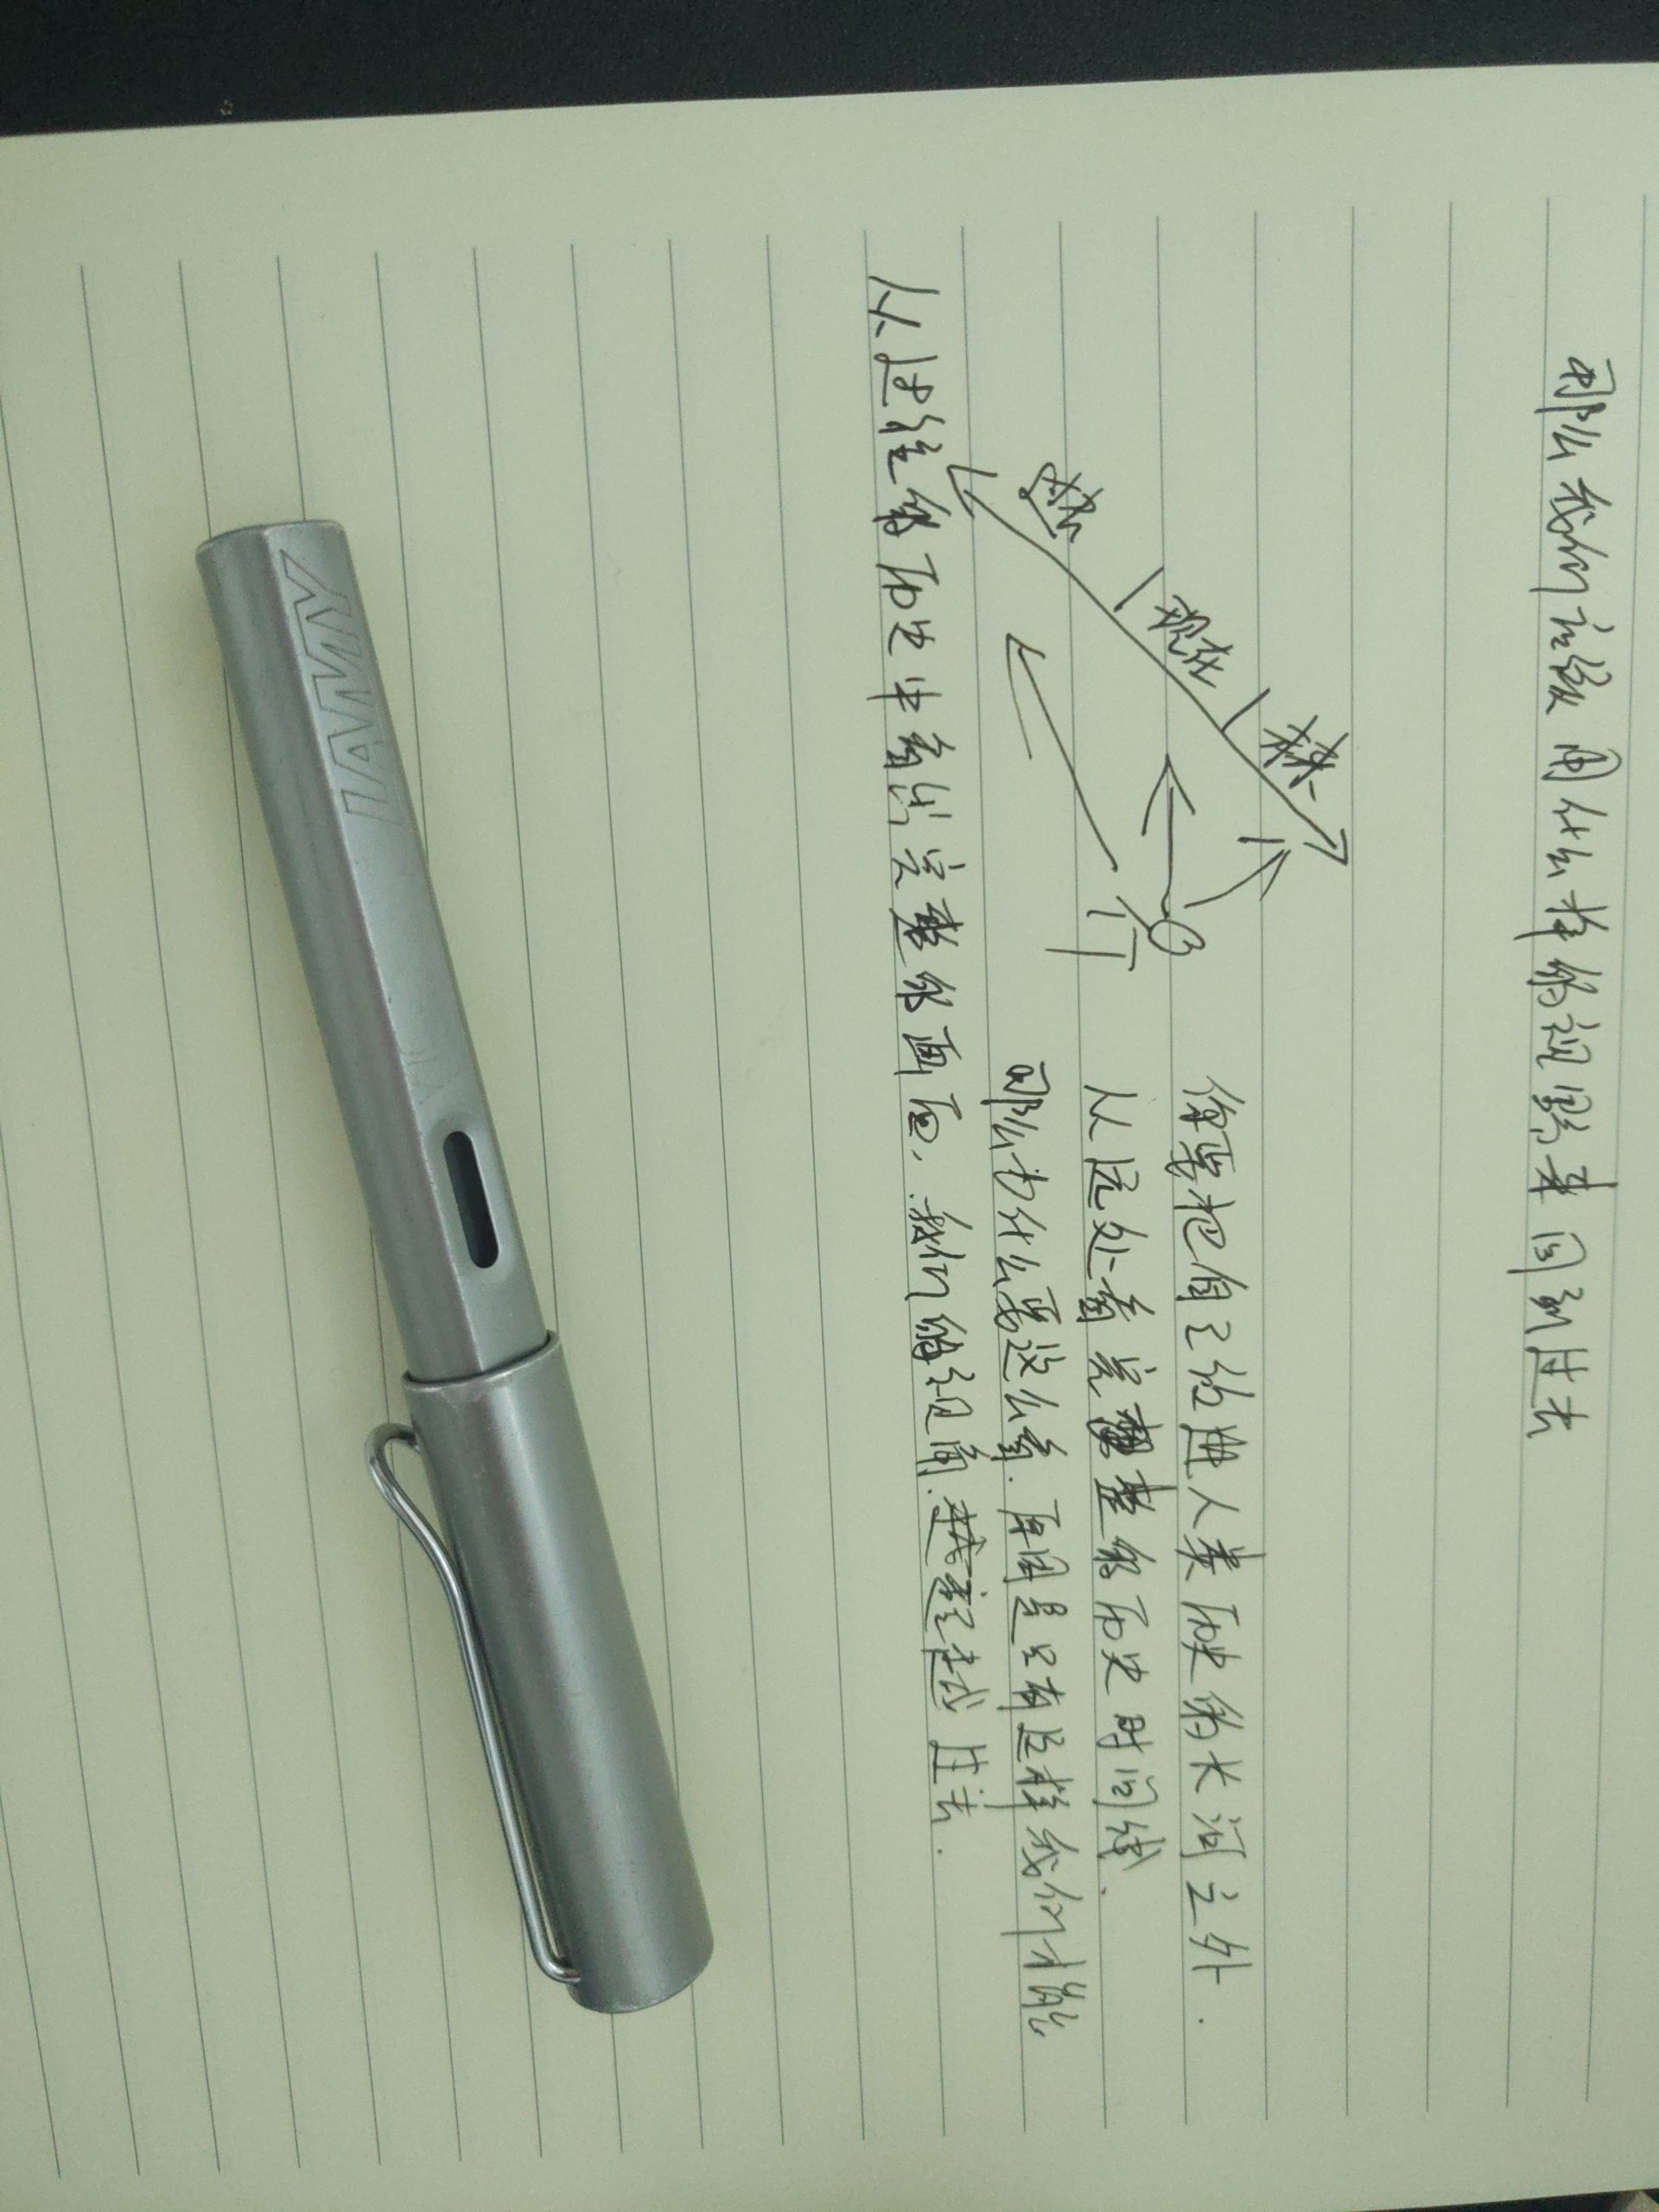 那么我们应该用什么样的视野来回到过去
未来
现在
过去
你要把自己放进人类历史的长河之外.
从远处看完整的历史时间线.
那么为什么要这么看.原因是只有这样我们才能
从过往的历史中看出完整的画面,我们的视角.越
过去.
LAMY